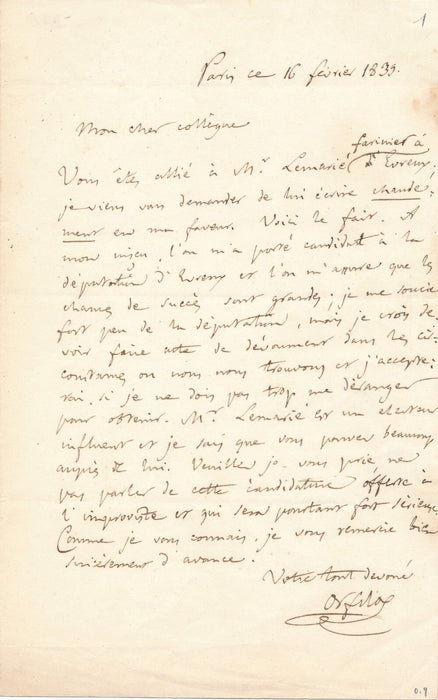 1
Paris ce 16 février 1839.
Mon cher collègue
farinier à
Vous êtes allié à Mr. Lemarié d'Evreux.
je viens vous demander de lui écrire chaude-
ment en ma faveur. Voici le fait. A
mon insçu, l'on m'a porté candidat à la
députation d'Evreux et l'on m'assure que les
chances de succès sont grandes; je me soucie
fort peu de la députation, mais je crois de-
voir faire acte de dévoument dans les cir-
constances où nous nous trouvons et j'accepte-
rai, si je ne dois pas trop me déranger
pour obtenir. Mr. Lemarié est un électeur
influent et je sais que vous pouvez beaucoup
auprès de lui. Veuillez je vous prie, ne
pas parler de cette candidature offerte à
l'improviste et qui sera pourtant fort sérieuse
Comme je vous connais, je vous remercie bien
sincèrement d'avance.
Votre tout devoué
Orfila